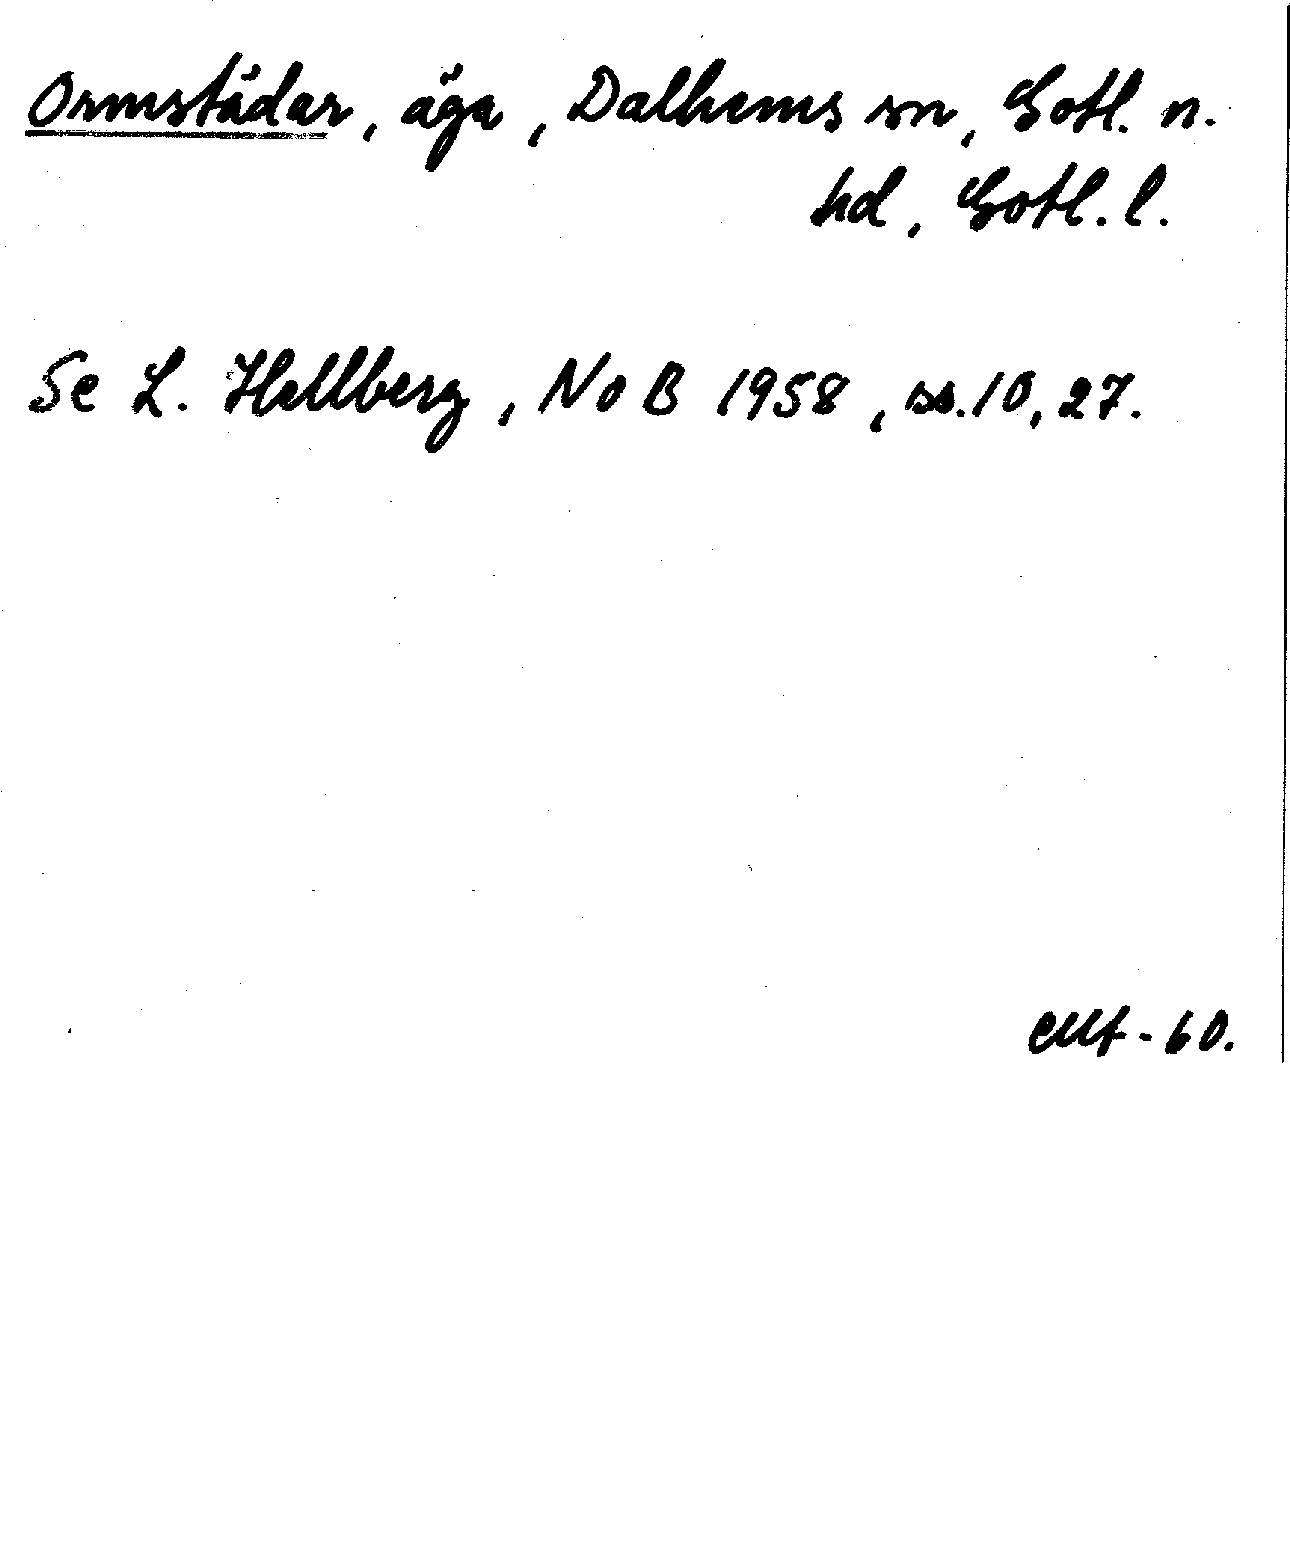 Ormstädar, äga, Dalhems sn, Gotl. n.
hd, Gotl. l.
Se L. Hellberg, NoB 1958, ss. 10, 27.
-60.